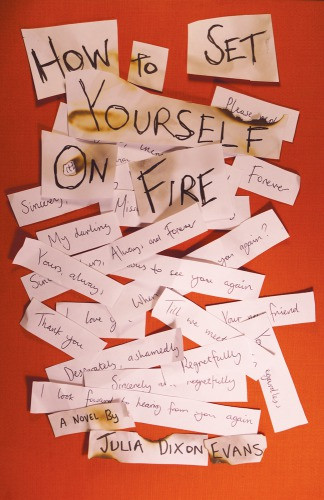 HOW TO SET
YOURSELF
ON FIRE
Please
Forever
Sincerely,
My darling
Always, and Forever
you again?
Yours, always,
to see you again
I love
When
Till we meet
Your friend
Thank you
Desperately, ashamedly
Regretfully,
regards,
Sincerely and regretfully
I look forward to hearing from you again
A NOVEL BY
JULIA DIXON EVANS